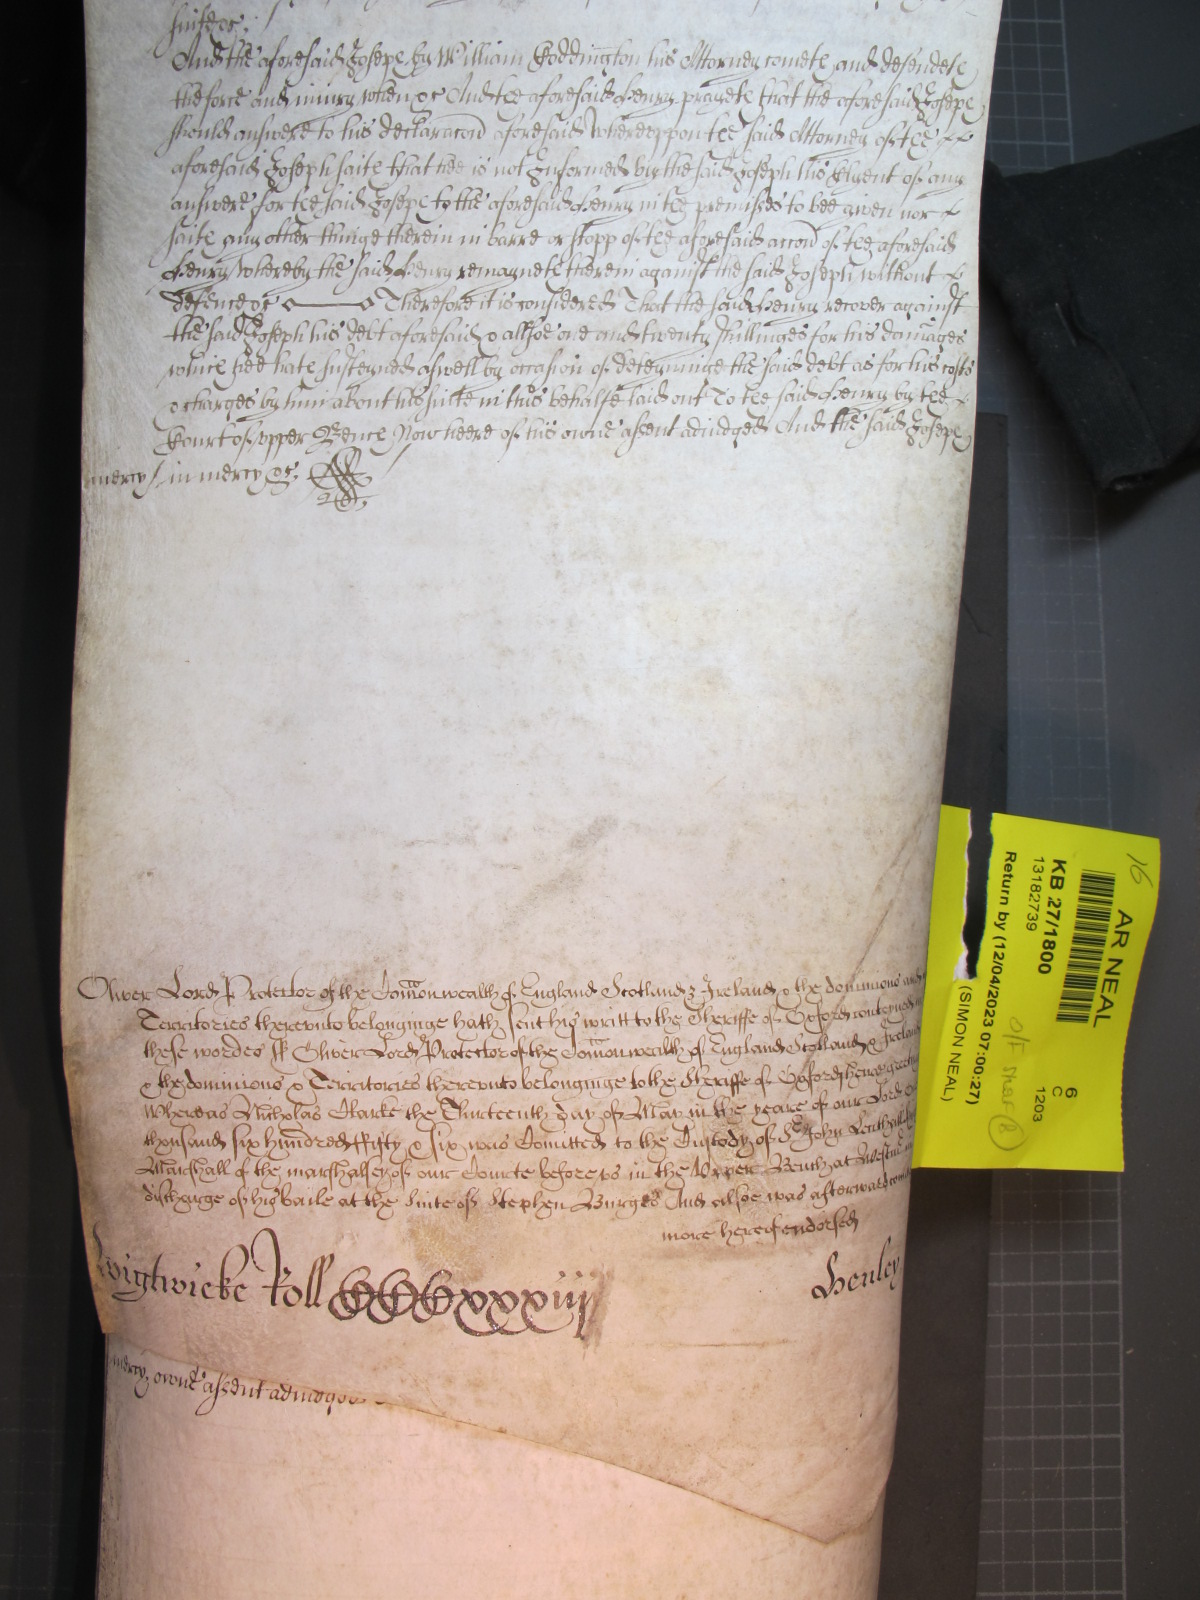 suite &c.
And the aforesaid Joseph by William Coddington his Attorney cometh and defendeth
the force and iniury when &c And the aforesaid Henry prayeth that the aforesaid Joseph
should answere to his declaracon aforesaid Whereuppon the said Attorney of the
aforesaid Joseph saith that hee is not Informed by the said Joseph his Clyent of any
answere for the said Joseph to the aforesaid Henry in the premisses to bee given nor
saith any other thinge therein in barre or stopp of the aforesaid accon of the aforesaid
Henry Whereby the said Henry remayneth therein against the said Joseph without
defence &c Therefore it is considered That the said Henry recover against
the said Joseph his debt aforesaid & allsoe one and twenty shillinges for his damages
which hee hath susteyned aswell by occasion of deteyninge the said debt as for his costs
& charges by him about his suite in this behalfe laid out To the said Henry by the
Court of upper Bench Now heere of his owne assent adiudged And the said Joseph
mercy / in mercy &c.
Oliver Lord Protector of the Comonwealth of England Scotland & Ireland & the dominions and
Territories thereunto belonginge hath sent his writt to the Sheriffe of Oxford conteyned in
these wordes ss Oliver Lord Protector of the Comonwealth of England Scotland & Ireland
& the dominions & Territories thereunto belonginge to the Sheriffe of Oxfordshire greeting
Whereas Nicholas Clarke the Thirteenth day of May in the yeare of our Lord One
thousand six hundred ffifty & six was Comitted to the Custody of Sr John Lenthall
Marshall of the marshalsey of our Courte before us in the Upper Bench at Westm in
discharge of his baile at the suite of Stephen Burges And alsoe was afterward
more hereof endorsed
Wightwicke Roll CCCCxxxiiij
Henley
mercy, owne assent adiudged
16
AR NEAL
KB 27/1800
13182739
Return by (12/04/2023 07:00:27)
(SIMON NEAL)
6
C
1203
O/F Shelf (8)